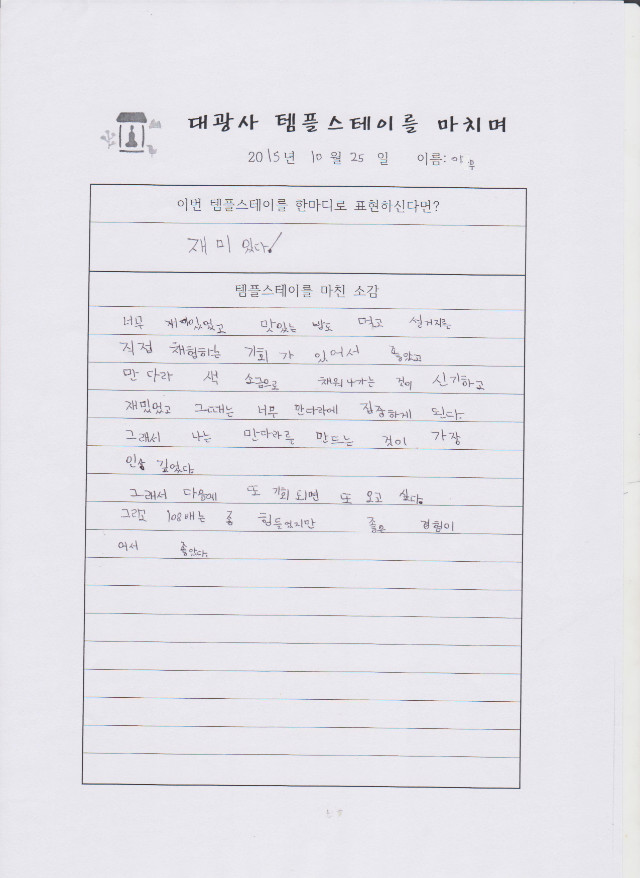 대광사 템플스테이를 마치며
2015년 10월 25일 이름:
이번 템플스테이를 한마디로 표현하신다면?
재미있다!
템플스테이를 마친 소감
너무 재미있었고 맛있는 밥도 먹고 설거지를
직접 체험하는 기회가 있어서 좋았고
만다라 색 소금으로 채워나가는 것이 신기하고
재밌었고 그때는 너무 만다라에 집중하게 된다.
그래서 나는 만다라를 만드는 것이 가장
인상 깊었다.
그래서 다음에 또 기회 되면 또 오고 싶다.
그리고 108배는 좀 힘들었지만 좋은 경험이
어서 좋았다.